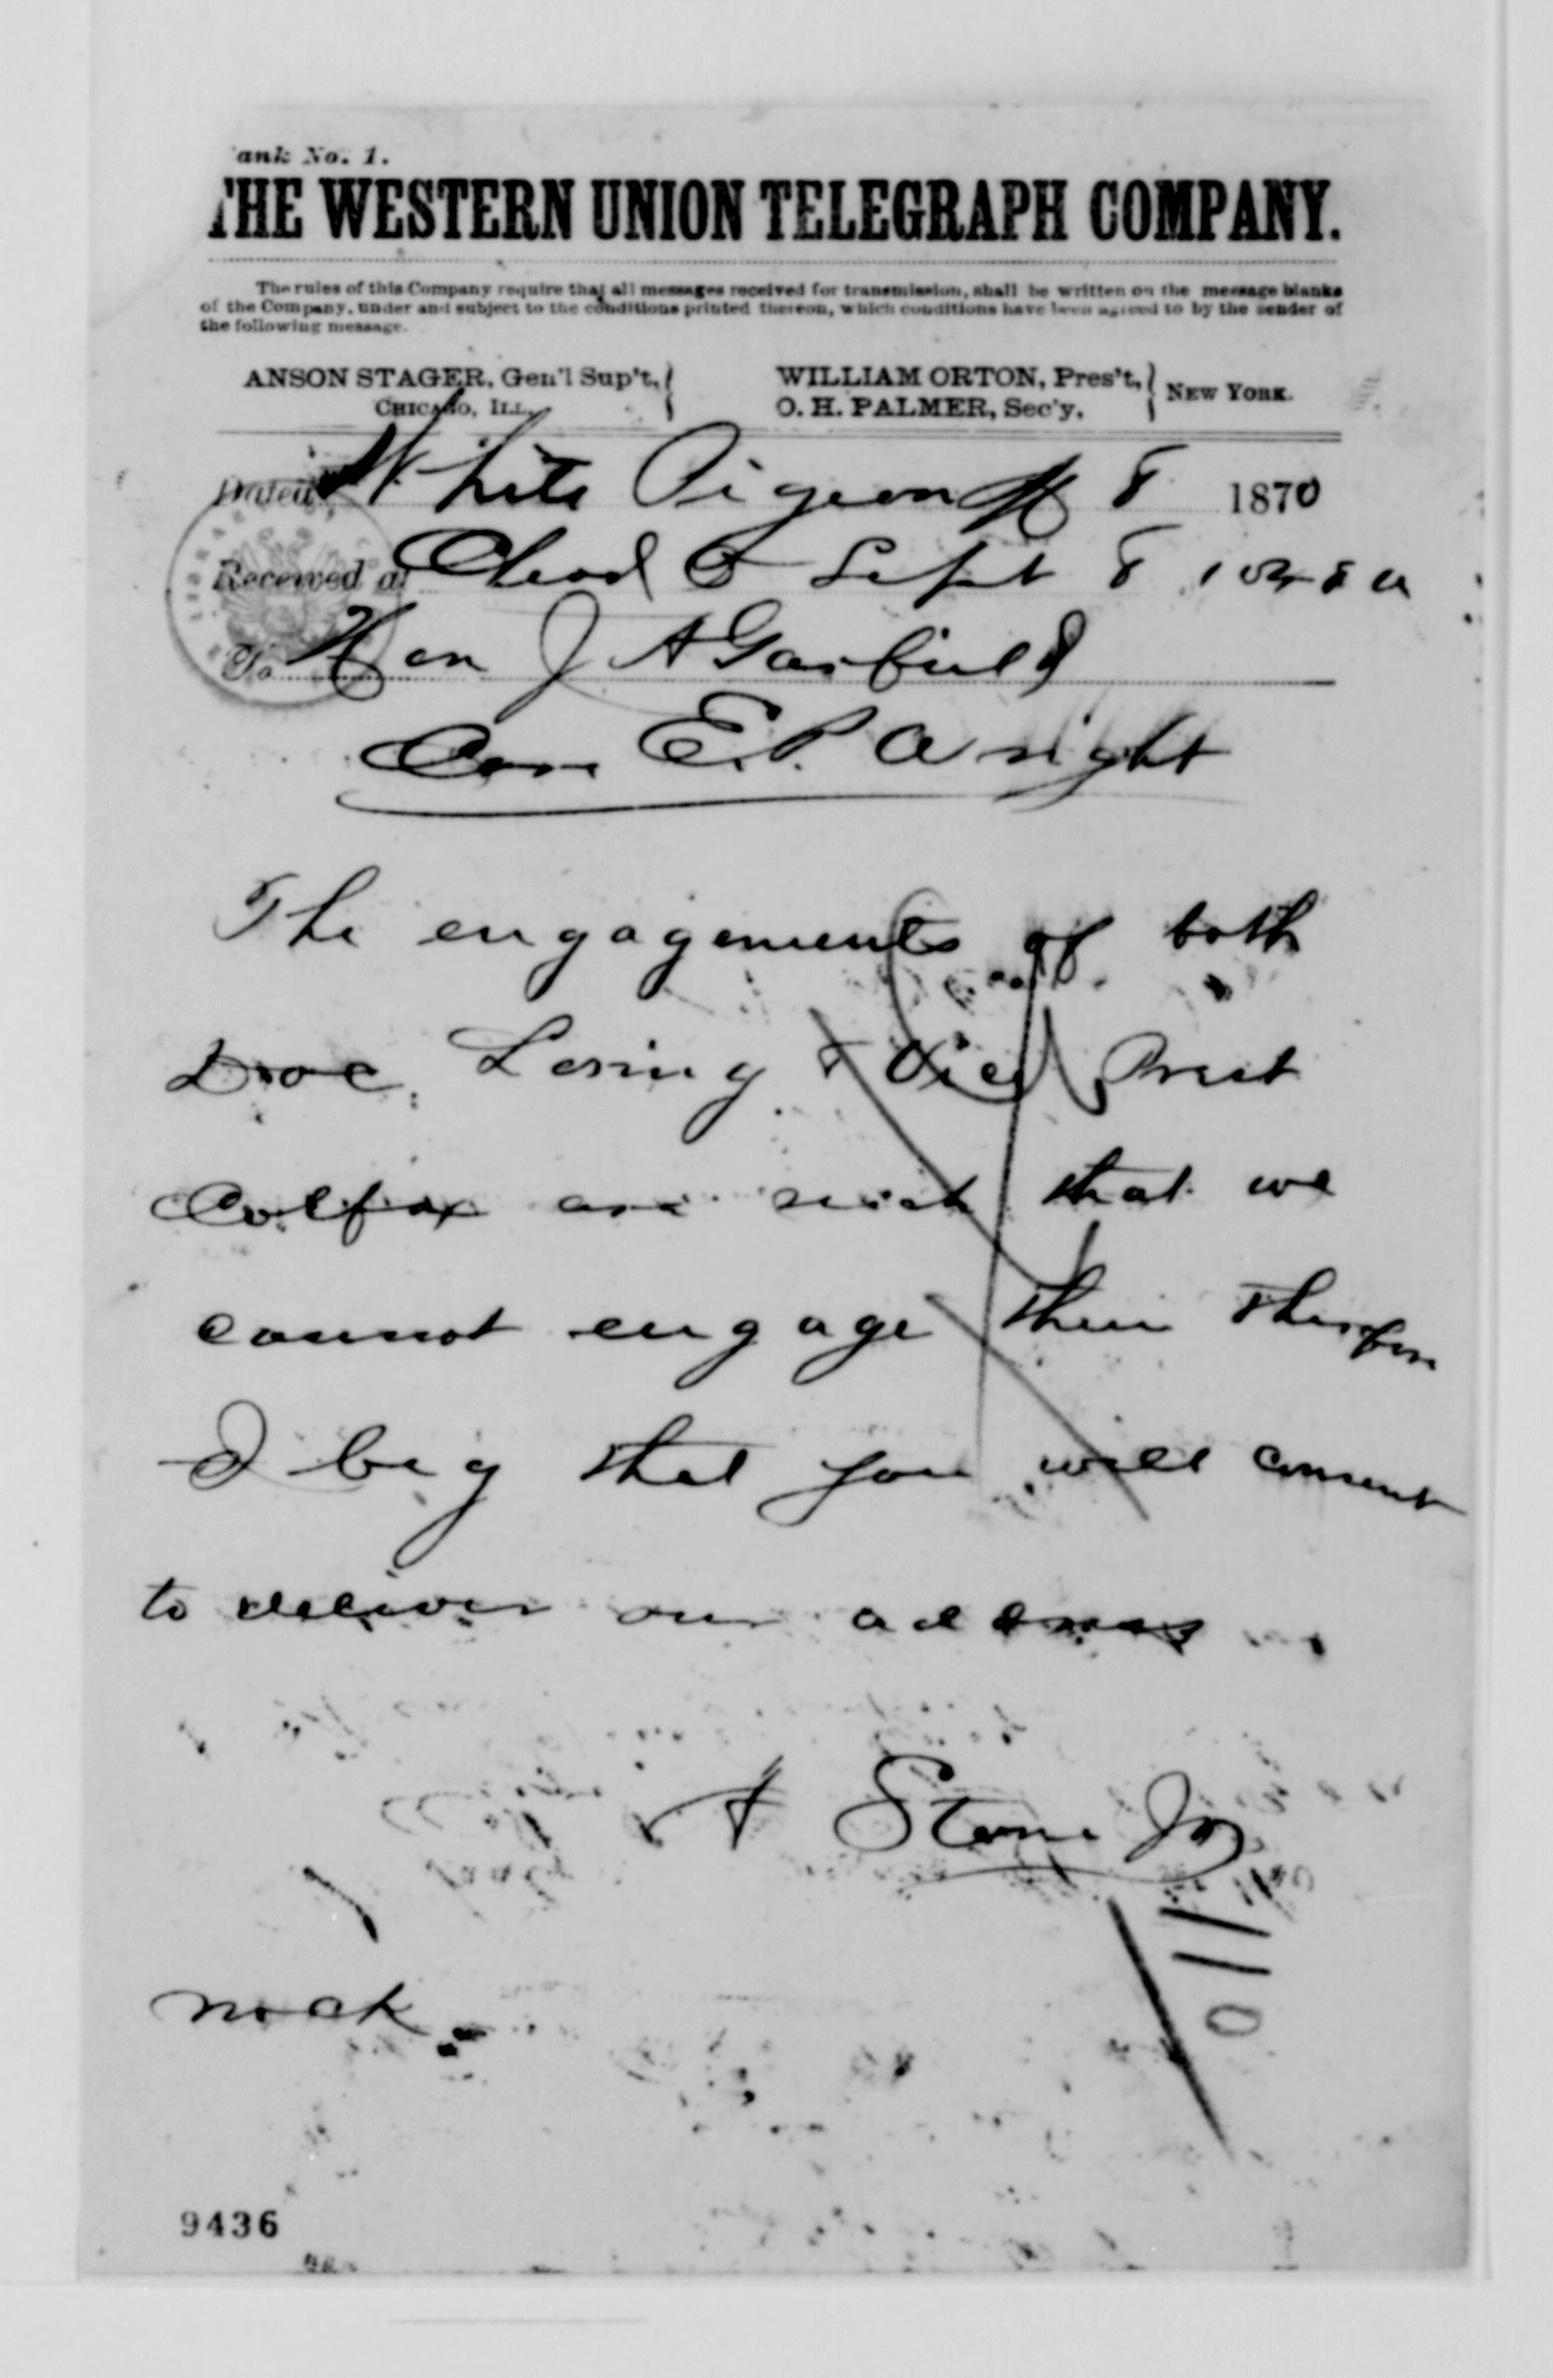 ank No. 1.
THE WESTERN UNION TELEGRAPH COMPANY.
The rules of this Company require that all messages received for transmission, shall be written on the message blanks
of the Company, under and subject to the conditions printed thereon, which conditions have been agreed to by the sender of
the following message.
ANSON STAGER, Gen'l Sup't,
CHICAGO, ILL.
WILLIAM ORTON, Pres't,
O. H. PALMER, Sec'y,
NEW YORK.
Dated White Pigeon 8 1870
Received at Clevd O Sept 8
To Hon J A Garfield
Care E. P. Wright
The engagements of both
Doc. Loring & Vice Prest
Colfax are such that we
cannot engage them Therefore
I beg that you will consent
to deliver our address
A Stone Jr
9436